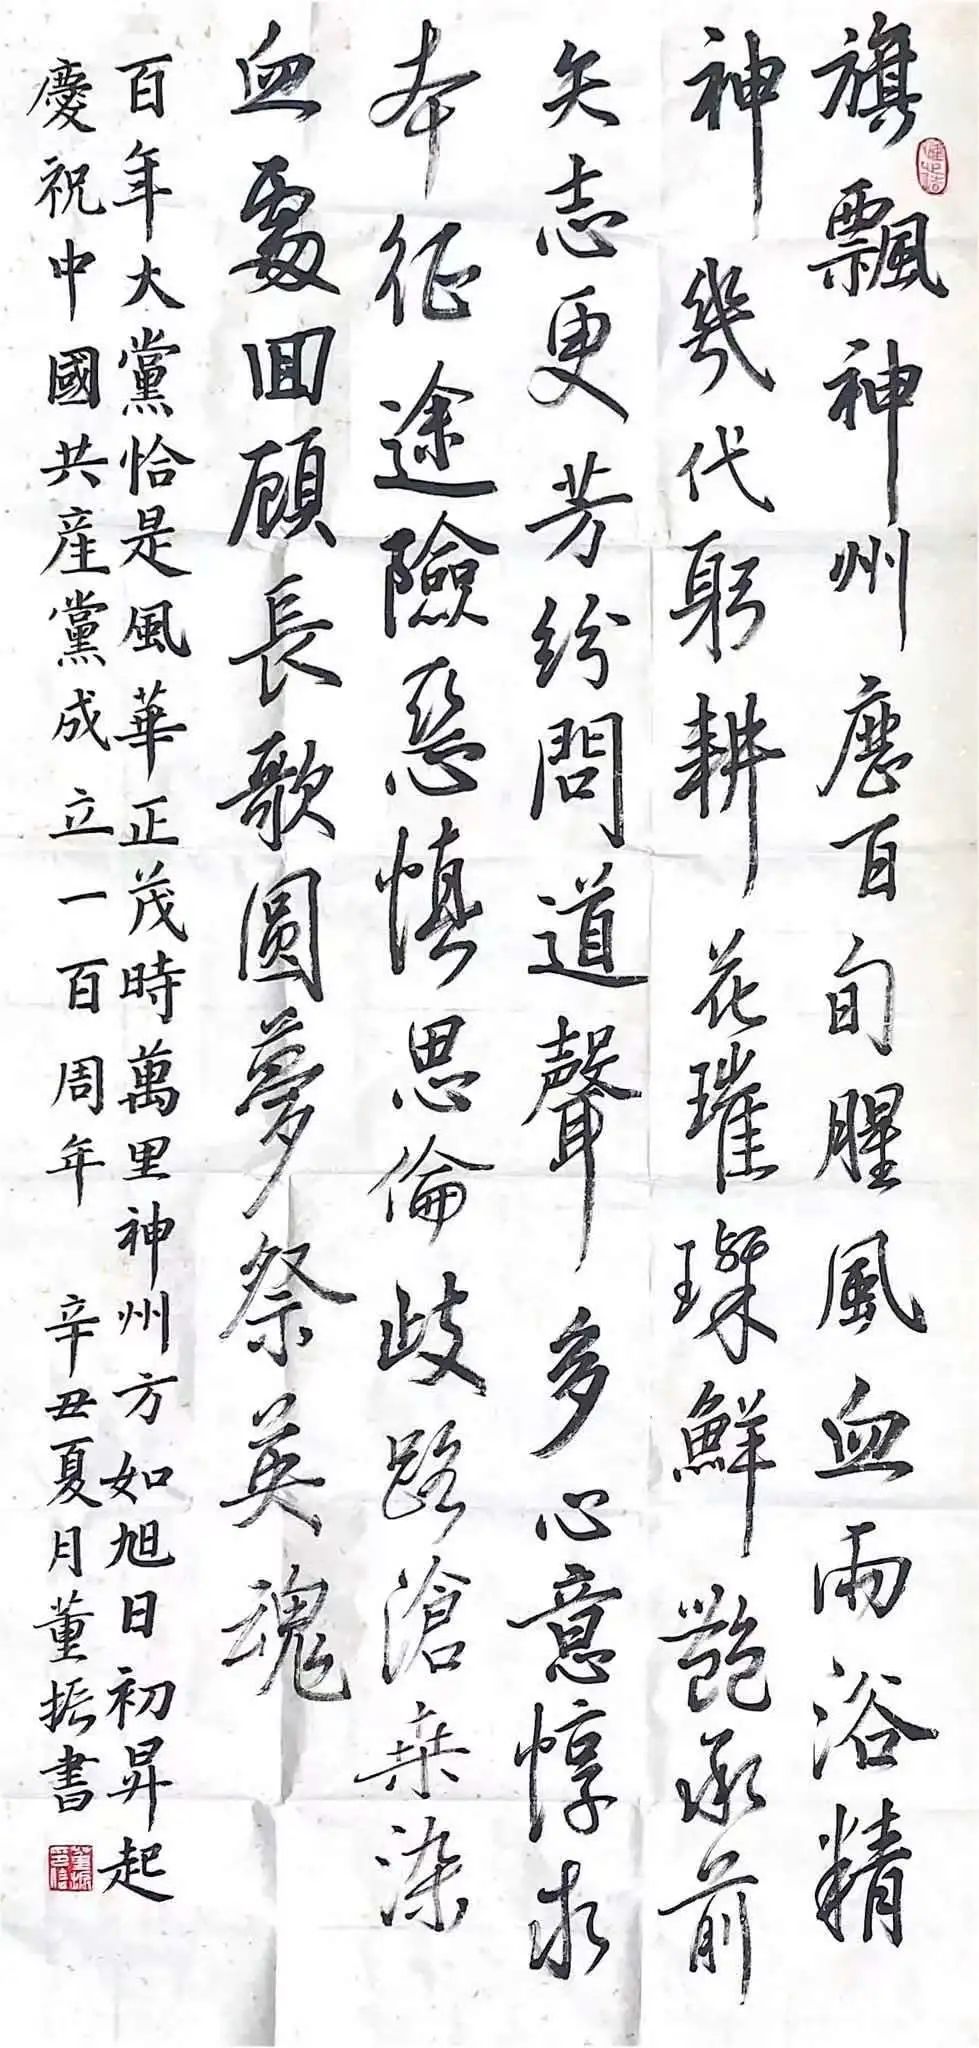 旗飄神州歷百旬腥風血雨浴精
神幾代躬耕花璀璨鮮艷承前
矢志更芳紛問道聲多心意惇求
本征途險惡慎思倫歧路滄桑染
血處回顾長歌圓夢祭英魂
百年大黨恰是風華正茂時萬里神州方如旭日初昇起
慶祝中國共産黨成立一百周年 辛丑夏月董振書
董振印信